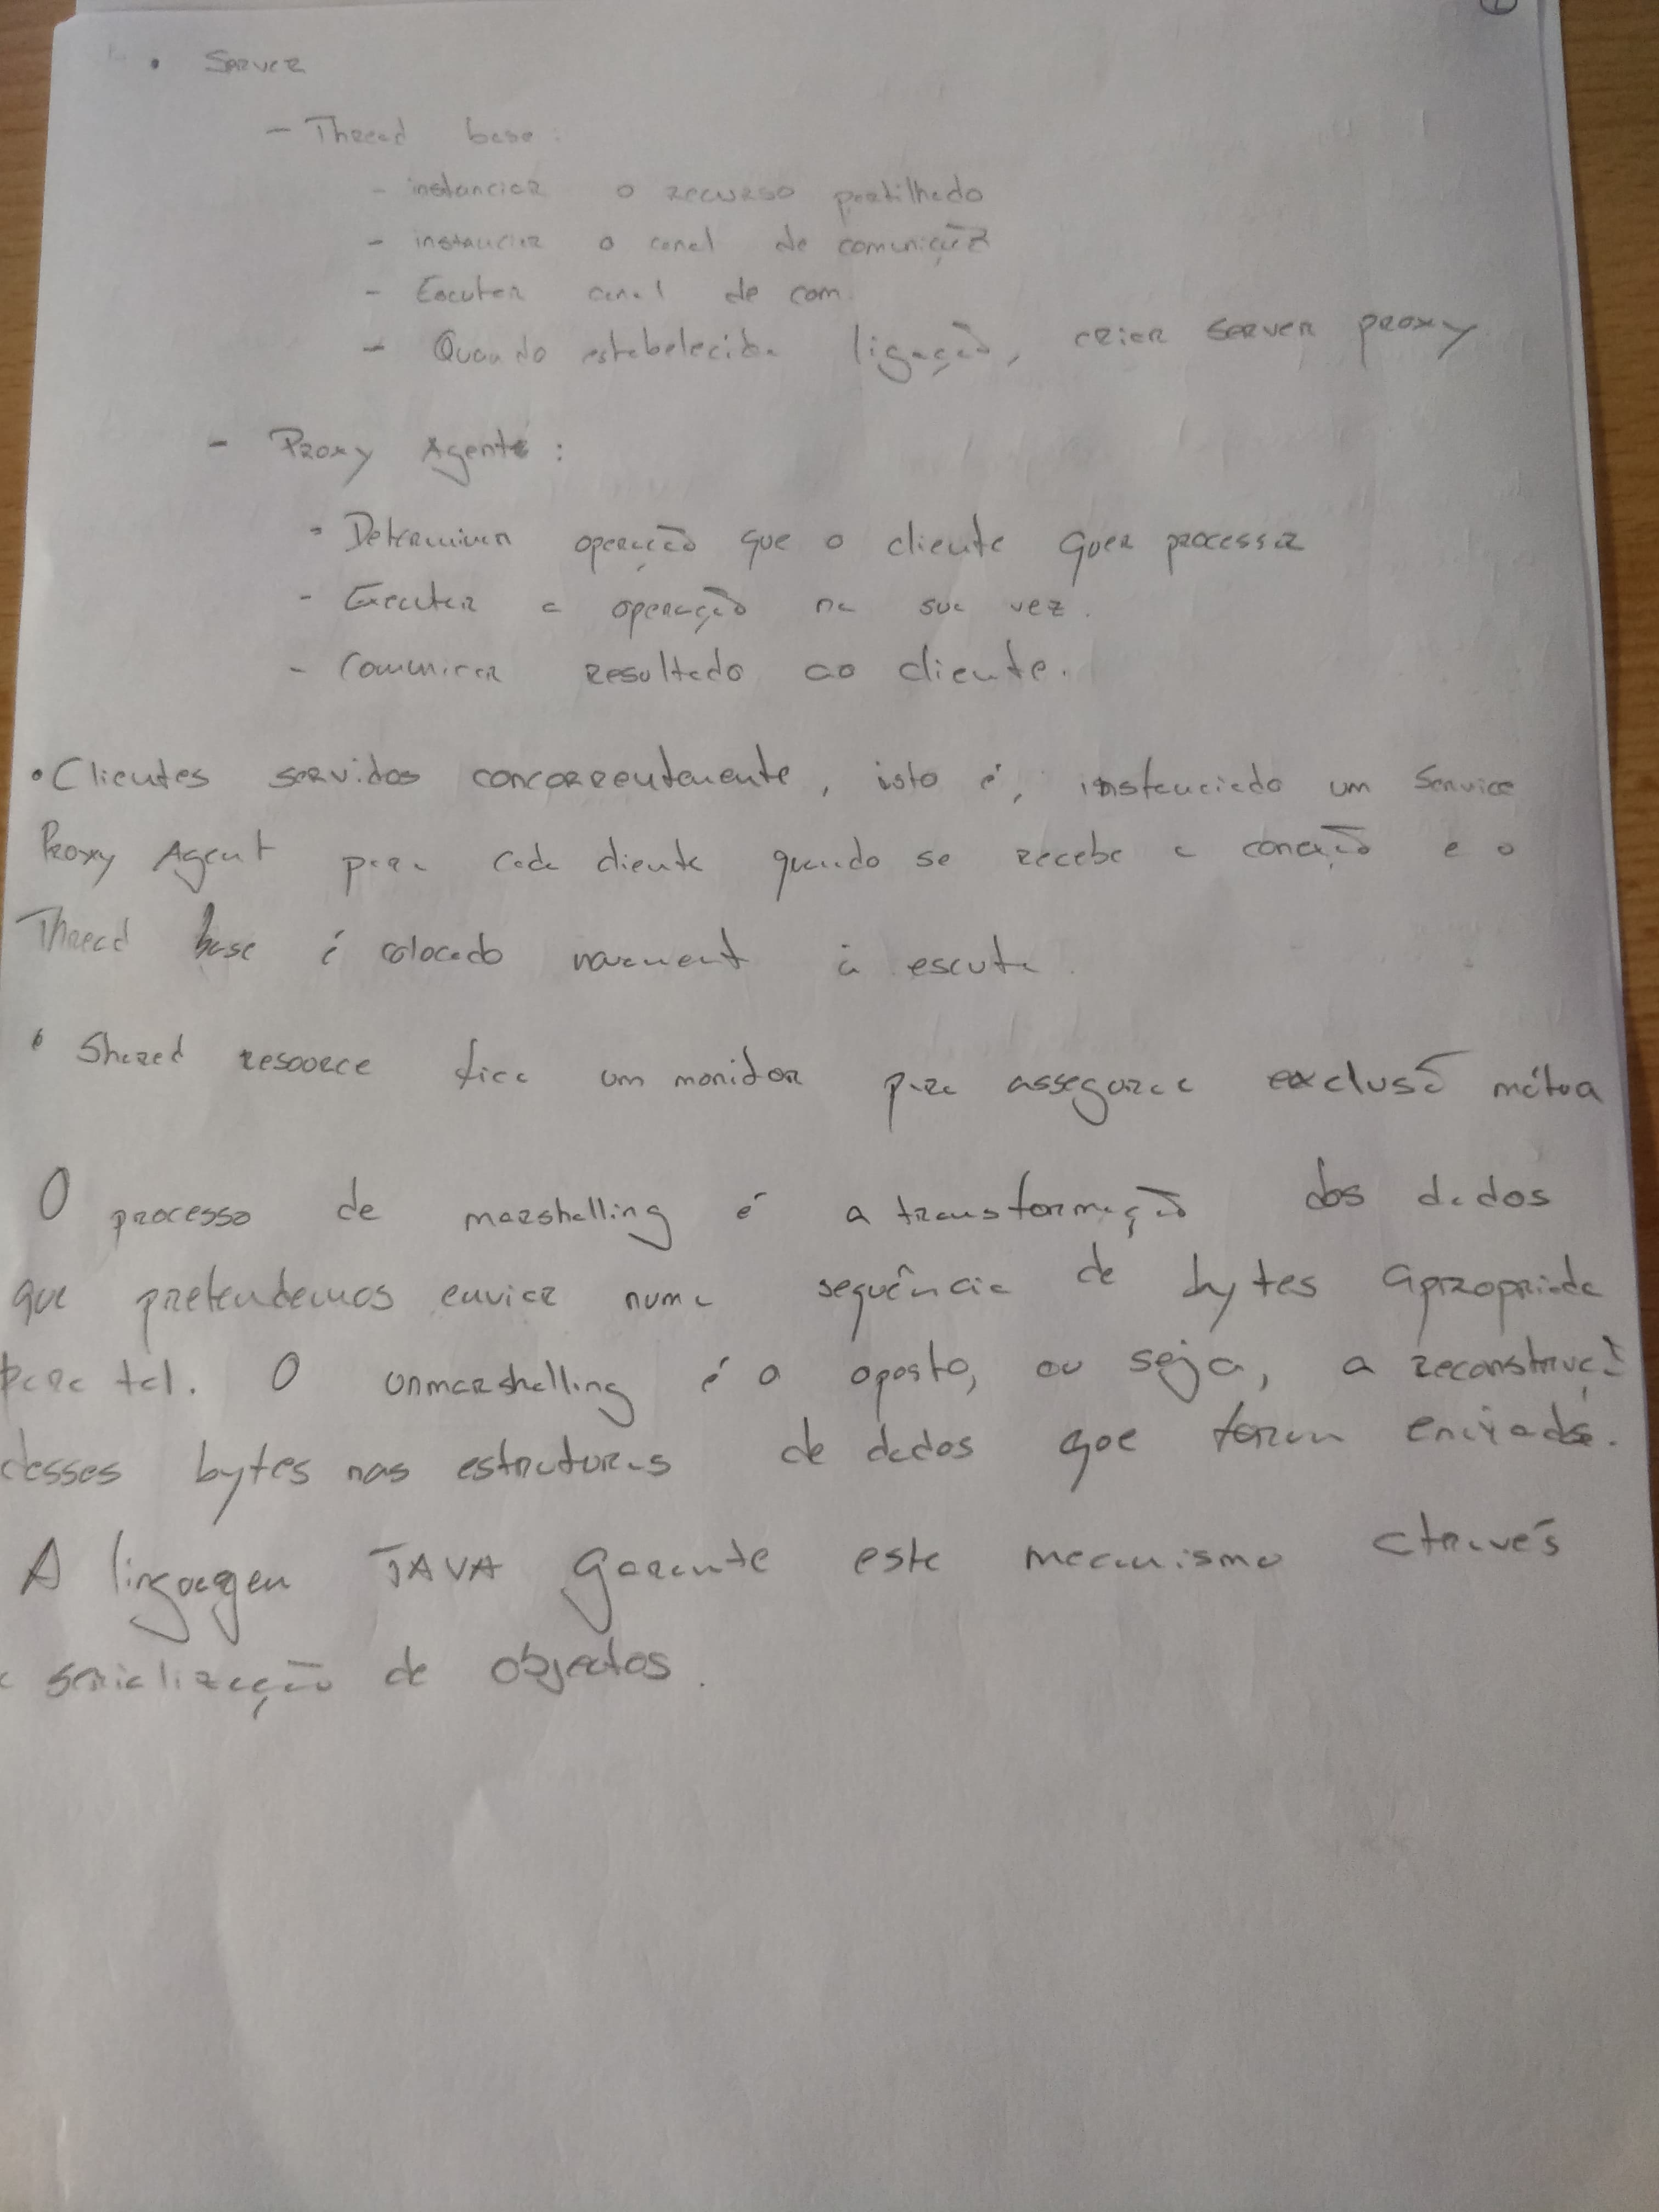 • Server
- Thread base:
- instanciar o recurso partilhado
- instanciar o canal de comunição
- Escutar canal de com.
- Quando estabelecida ligação, criar server proxy
- Proxy Agente:
- Determinar operação que o cliente quer processar
- Executar a operação na sua vez.
- Comunicar resultado ao cliente.
• Clientes servidos concorrentemente, isto é, instanciado um Service
Proxy Agent para cada cliente quando se recebe a conexão e o
Thread base é colocado novament à escuta.
• Shared resource fica um monitor para assegurar a exclusã mútua
O processo de marshalling é a transformação dos dados
que pretendemos enviar numa sequência de bytes apropriada
para tal. O unmarshalling é o oposto, ou seja, a reconstruçã
desses bytes nas estruturas de dados que foram enviadas.
A linguagem JAVA garante este mecanismo através
a serialização de objectos.